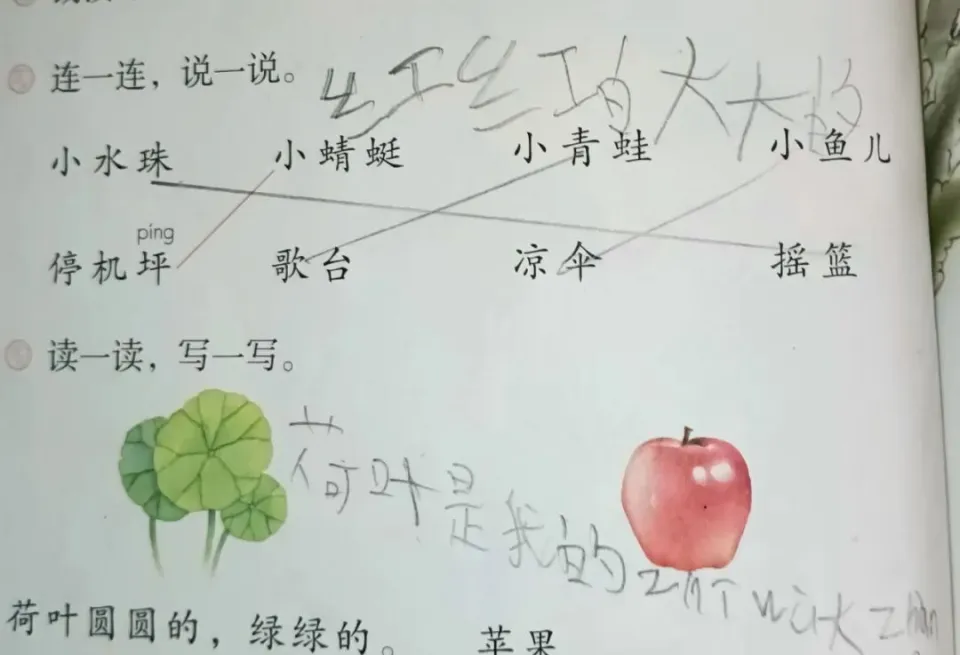 连一连，说一说。
红红的大大的
小水珠 小蜻蜓 小青蛙 小鱼儿
píng
停机坪 歌台 凉伞 摇篮
读一读，写一写。
荷叶是我的
荷叶圆圆的，绿绿的。 苹果